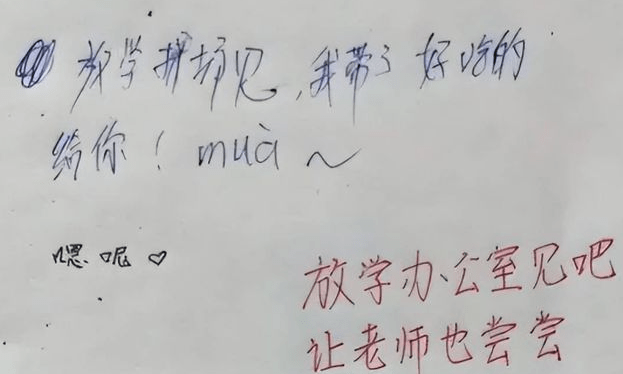 放学操场见,我带了好吃的
给你!muà~
嗯呢♡
放学办公室见吧
让老师也尝尝